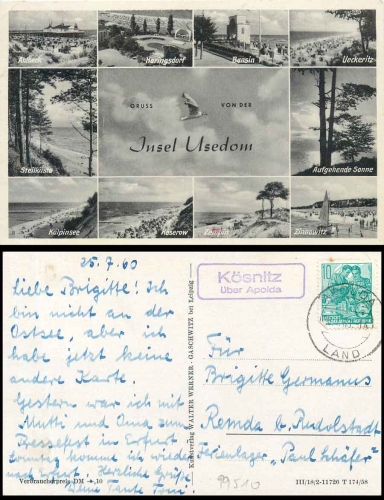 Ahlbeck
Heringsdorf
Bansin
Ueckeritz
GRUSS VON DER
Insel Usedom
Steilküste
Aufgehende Sonne
Kölpinsee
Koserow
Zempin
Zinnowitz
25.7.60
Liebe Brigitte! Ich
bin nicht an der
Ostsee, aber ich
habe jetzt keine
andere Karte.
Gestern war ich mit
Mutti und Oma zum
Pressefest in Erfurt
Sonntag komme ich wieder
nach Erfurt. Herzliche Grüße
Deine Tante
Verbraucherpreis DM -,10
Kunstverlag WALTER WERNER · GASCHWITZ bei Leipzig
Kösnitz
über Apolda
10
LAND
Für
Brigitte Germanus
Remda b. Rudolstadt
Ferienlager "Paul Schäfer"
99510
III/18/2-11720 T 174/58